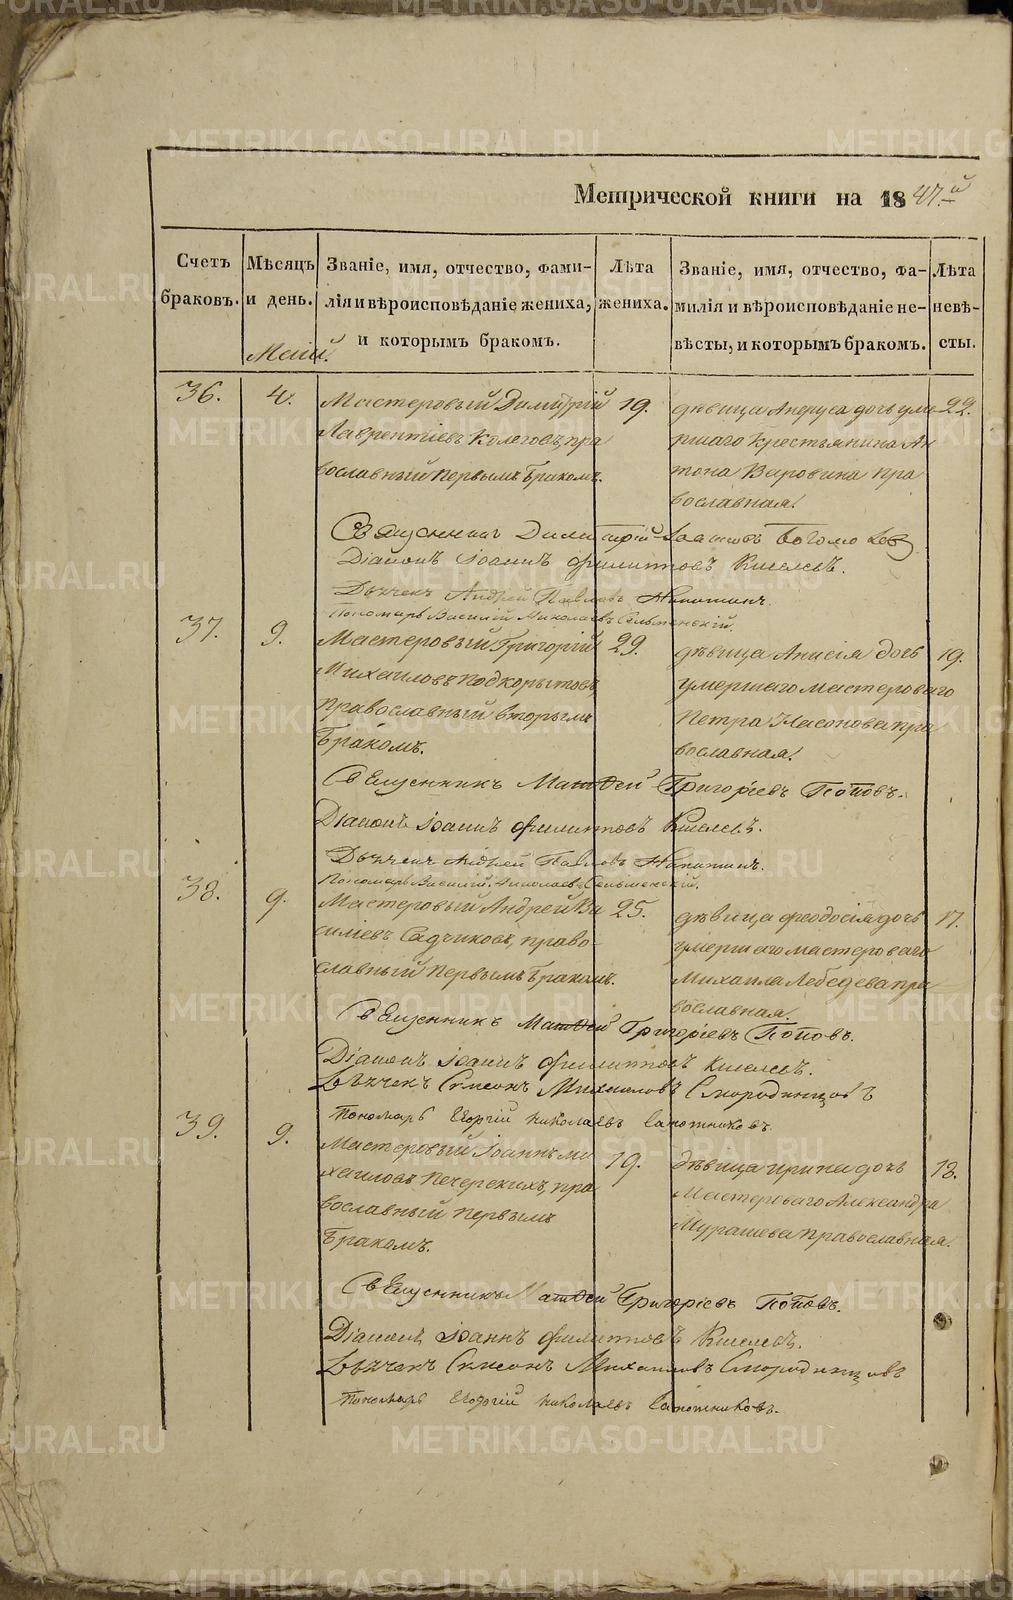 Метрической книги на 1847.й
Счетъ браковъ.
Мѣсяцъ и день.
Званіе, имя, отчество, фами-
лія и вѣроисповѣданіе жениха,
и которымъ бракомъ.
Лѣта жениха.
Званіе, имя, отчество, фа-
милія и вѣроисповѣданіе не-
вѣсты, и которымъ бракомъ.
Лѣта невѣ-
сты.
Маій.
36.
4.
Мастеровый Димитрій
Лаврентіевъ пра
вославный первымъ бракомъ.
19.
дѣвица дочь уме
ршаго крестьянина Ан
тона пра
вославная.
22.
Священникъ Димитрій Богомо
Діаконъ Іоаннъ Филипповъ Киселевъ.
Дьячекъ Андрей Павловъ
Пономарь Василій Николаевъ
37.
9.
Мастеровый Григорій
Михаиловъ Подкорытовъ,
православный вторымъ
бракомъ.
29.
дѣвица Анисія дочь
умершаго мастероваго
Петра пра
вославная.
19.
Священникъ Матѳей Григоріевъ Поповъ.
Діаконъ Іоаннъ Филипповъ Киселевъ.
Дьячекъ Андрей Павловъ
Пономарь Василій Николаевъ
38.
9.
Мастеровый Андрей Ва
силіевъ Садчиковъ, право-
славный первымъ бракомъ.
25.
дѣвица Феодосія дочь
умершаго мастероваго
Михаила Лебедева пра
вославная.
17.
Священникъ Матѳей Григоріевъ Поповъ.
Діаконъ Іоаннъ Филипповъ Киселевъ.
Дьячекъ Симеонъ Михаиловъ Смородинцовъ
Пономарь Георгій Николаевъ Сапожниковъ.
39.
9.
Мастеровый Іоаннъ Ми
хаиловъ Печерскихъ, пра
вославный первымъ
бракомъ.
19.
дѣвица Ирина дочь
Мастероваго Александра
Мурашева православная.
18.
Священникъ Матѳей Григоріевъ Поповъ.
Діаконъ Іоаннъ Филипповъ Киселевъ.
Дьячекъ Симеонъ Михаиловъ Смородинцовъ
Пономарь Георгій Николаевъ Сапожниковъ.
METRIKI.GASO-URAL.RU